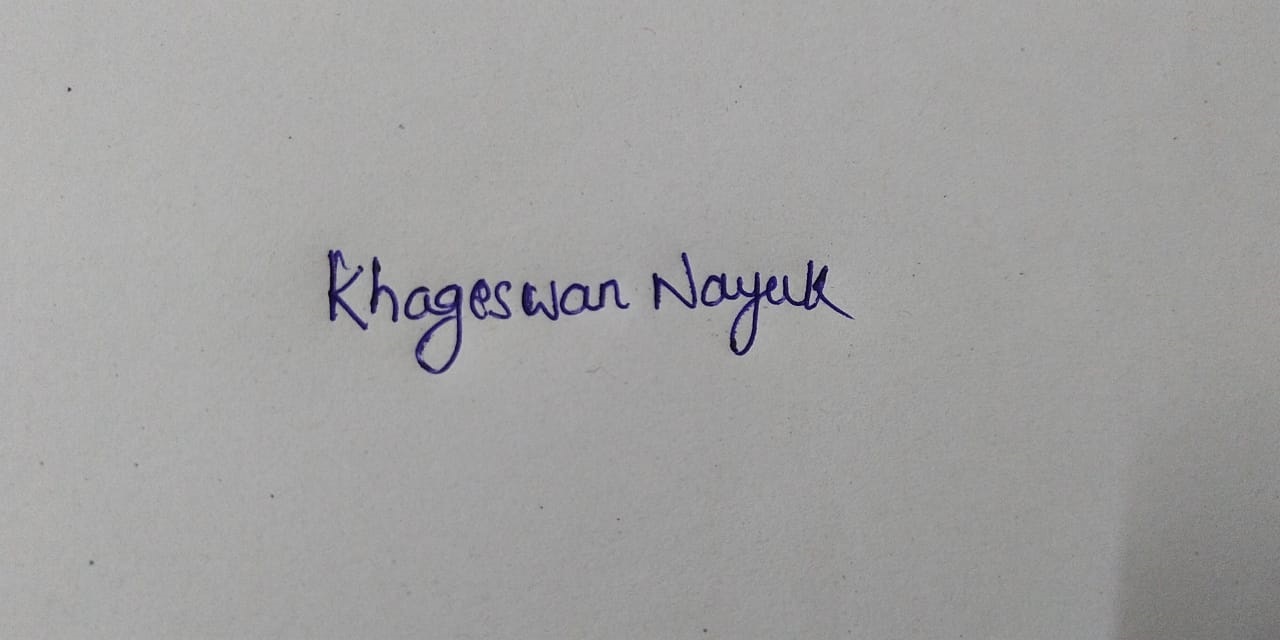 Khageswar Nayak